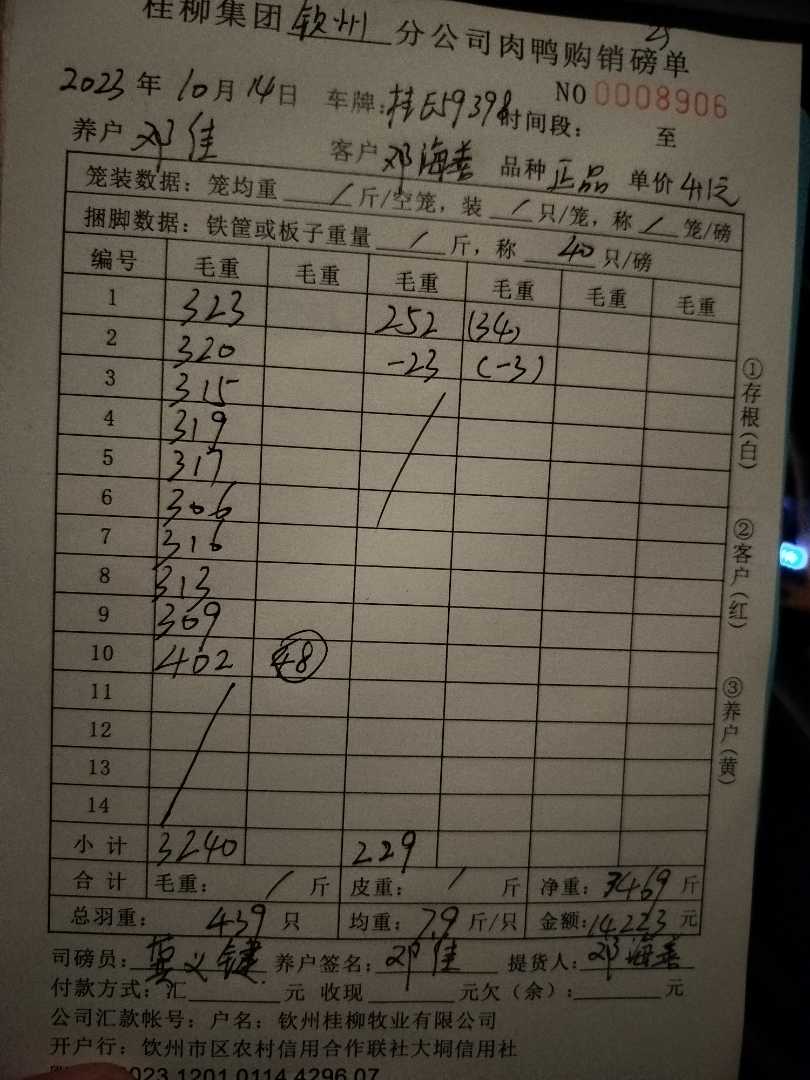 桂柳集团 钦州 分公司肉鸭购销磅单
2023年 10月 14日 车牌: NO 0008906
养户 邓佳 时间段: 至
客户 邓海善 品种 正品 单价 4.1元
笼装数据: 笼均重 / 斤/空笼, 装 / 只/笼, 称 / 笼/磅
捆脚数据: 铁筐或板子重量 / 斤, 称 40 只/磅
编号 毛重 毛重 毛重 毛重 毛重 毛重
1 323 252 (34)
2 320 -23 (-3)
3 315
4 319
5 317
6 306
7 316
8 313
9 309
10 402 48
11
12
13
14
小计 3240 229
合计 毛重: / 斤 皮重: / 斤 净重: 3469 斤
总羽重: 439 只 均重: 7.9 斤/只 金额: 14223 元
司磅员: 养户签名: 邓佳 提货人: 邓海善
付款方式: 汇 元 收现 元欠(余): 元
公司汇款帐号: 户名: 钦州桂柳牧业有限公司
开户行: 钦州市区农村信用合作联社大垌信用社
023 1201 0114 4296 07
①存根(白)
②客户(红)
③养户(黄)